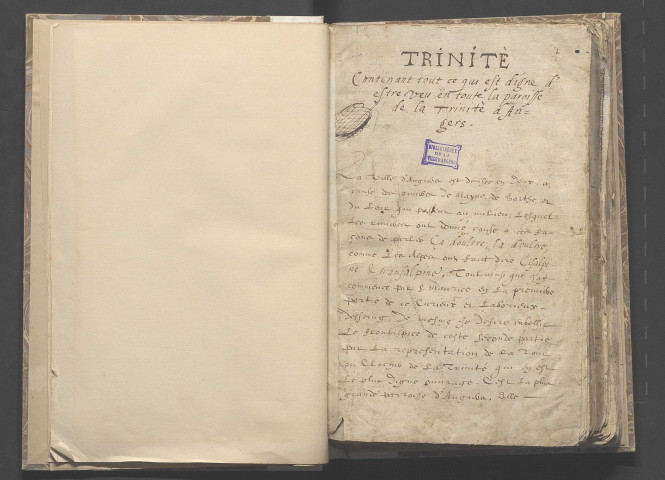 TRINITÈ
Contenant tout ce qui est digne d'
estre veu en toute la paroisse
de la Trinitè d'An-
gers.
BIBLIOTHEQUE
DE LA
VILLE D'ANGERS
La ville d'Angers est divisée en deux a
cause des rivieres de Mayne, de Sarthe, et
du Loir qui passent au milieu. Lesquel
les rivieres ont donné cause a ceste fa
çon de parler Ça doultre, la doultre,
comme Les Alpes ont fait dire Cisalpi
ne & transalpine, Tout ainsi que j'ay
commencé par S Maurice en La premiere
partie de ce Curieux et Laborieux
desseing de mesme je desire
Le frontispice de ceste seconde partie
par La representation de La Tour
ou Clocher de La Trinité qui en est
Le plus digne ouvrage. C'est La plus
grande parroisse d'Angers. Elle